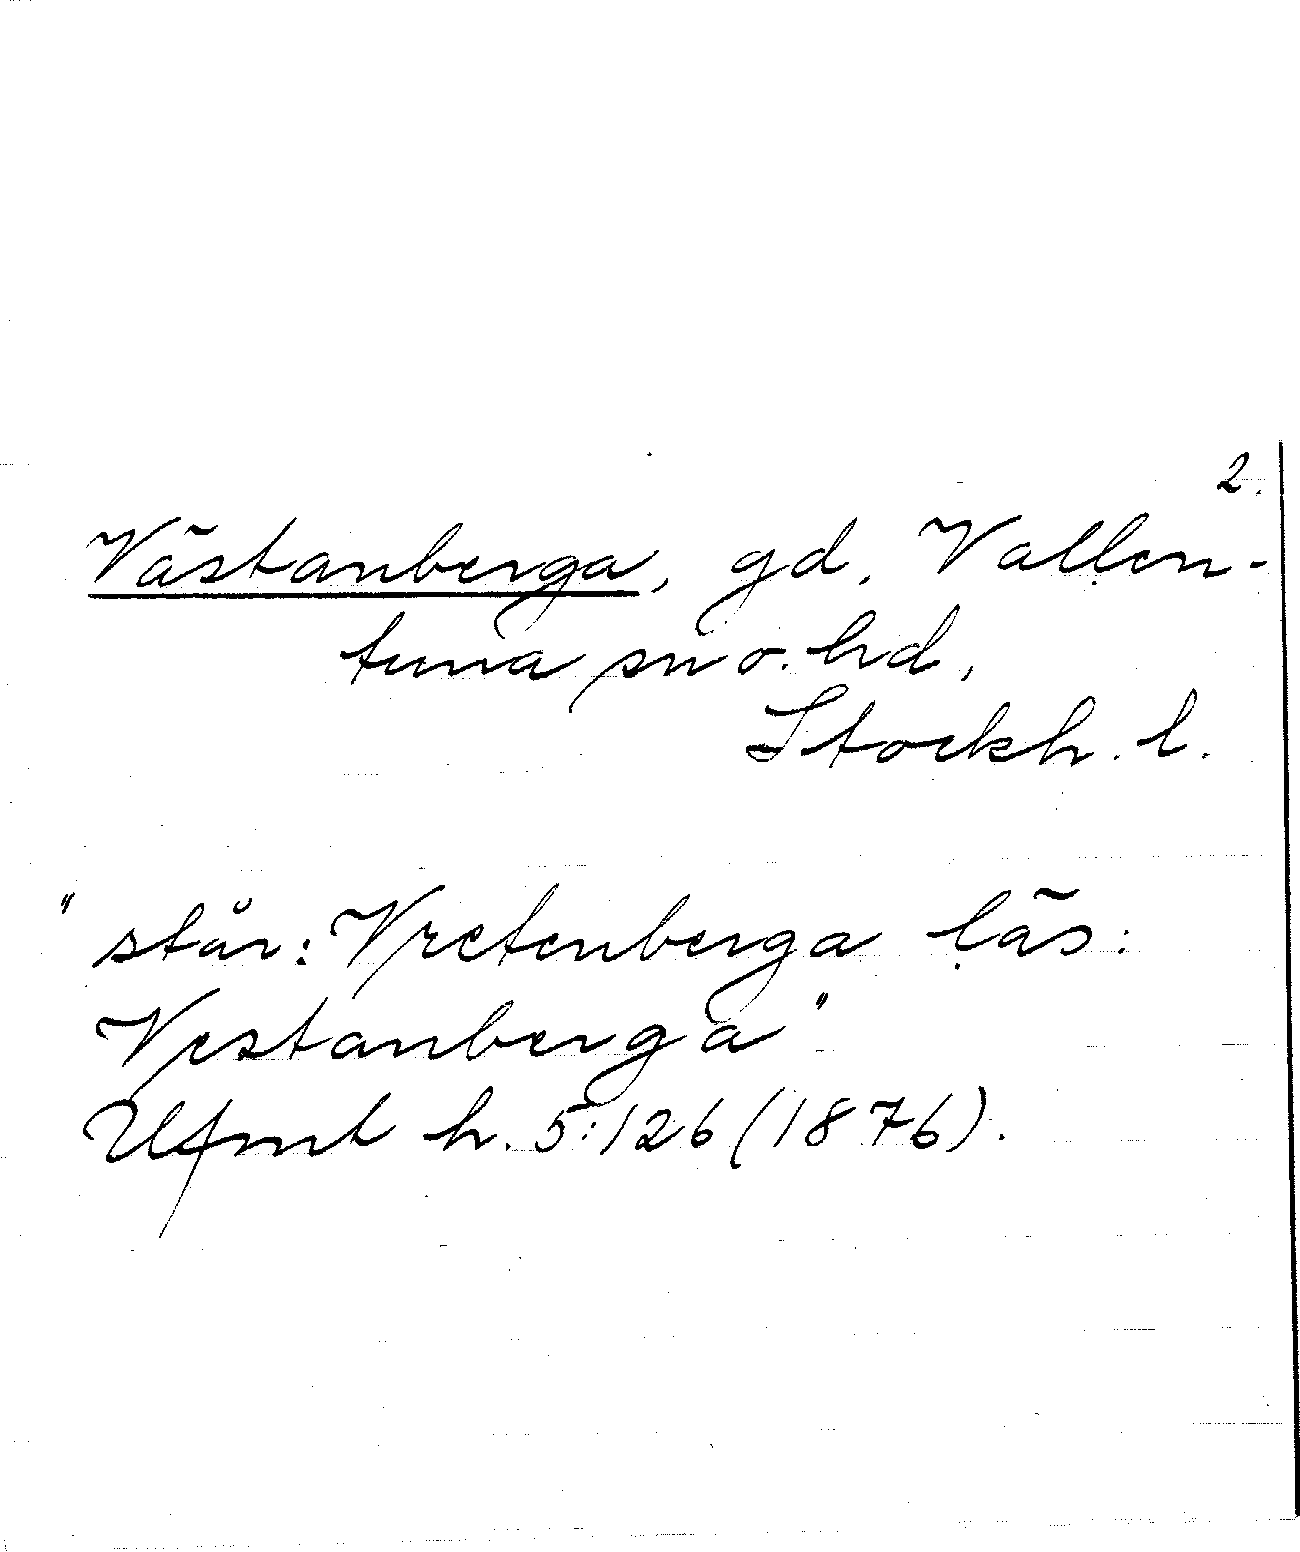 2.
Västanberga, gd, Vallen-
tuna sn o. hd,
Stockh. l.
" står: Vretenberga läs:
Vestanberga"
Ufmt h. 5:126 (1876).